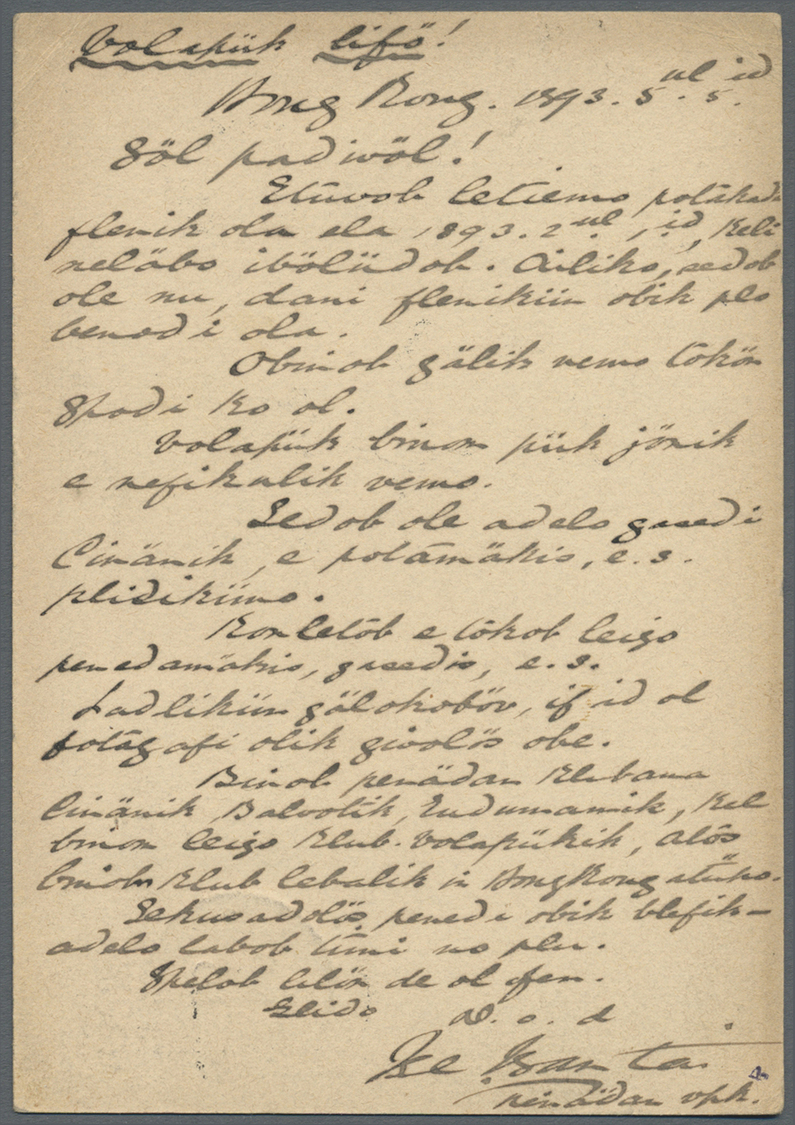 Volapük lifö!
Hong Kong. 1893. 5 ul. 5 id.
Söl padiwöl!
Etuvob letiemo potakadi
flenik ola ela 1893. 2 ul, id, keli
neläbo ibölüdob. Ailiko, sedob
ole nu, dani flenikün obik plo
benodi ola.
Obinob gälik vemo tökön
spodi ko ol.
Volapük binom pük jönik
e nefikulik vemo.
Sedob ole adelo gasedi
Cinänik, e potamäkis, e. s.
plidikümo.
Konletob e tökob leigo
penedamäkis, gasedis, e. s.
Ladlikün gälokoböv, if id ol
fotögafi olik givolös obe.
Binob penädan kluba
Cinänik, Balvotik, kel
binom leigo klub Volapükik,
binom klub lebalik in Hong Kong atüpo.
Sekusadolös, penedi obik blefik-
adelo labob timi no plu.
Spelob lilön de ol fen.
Glido
penädan vpk.